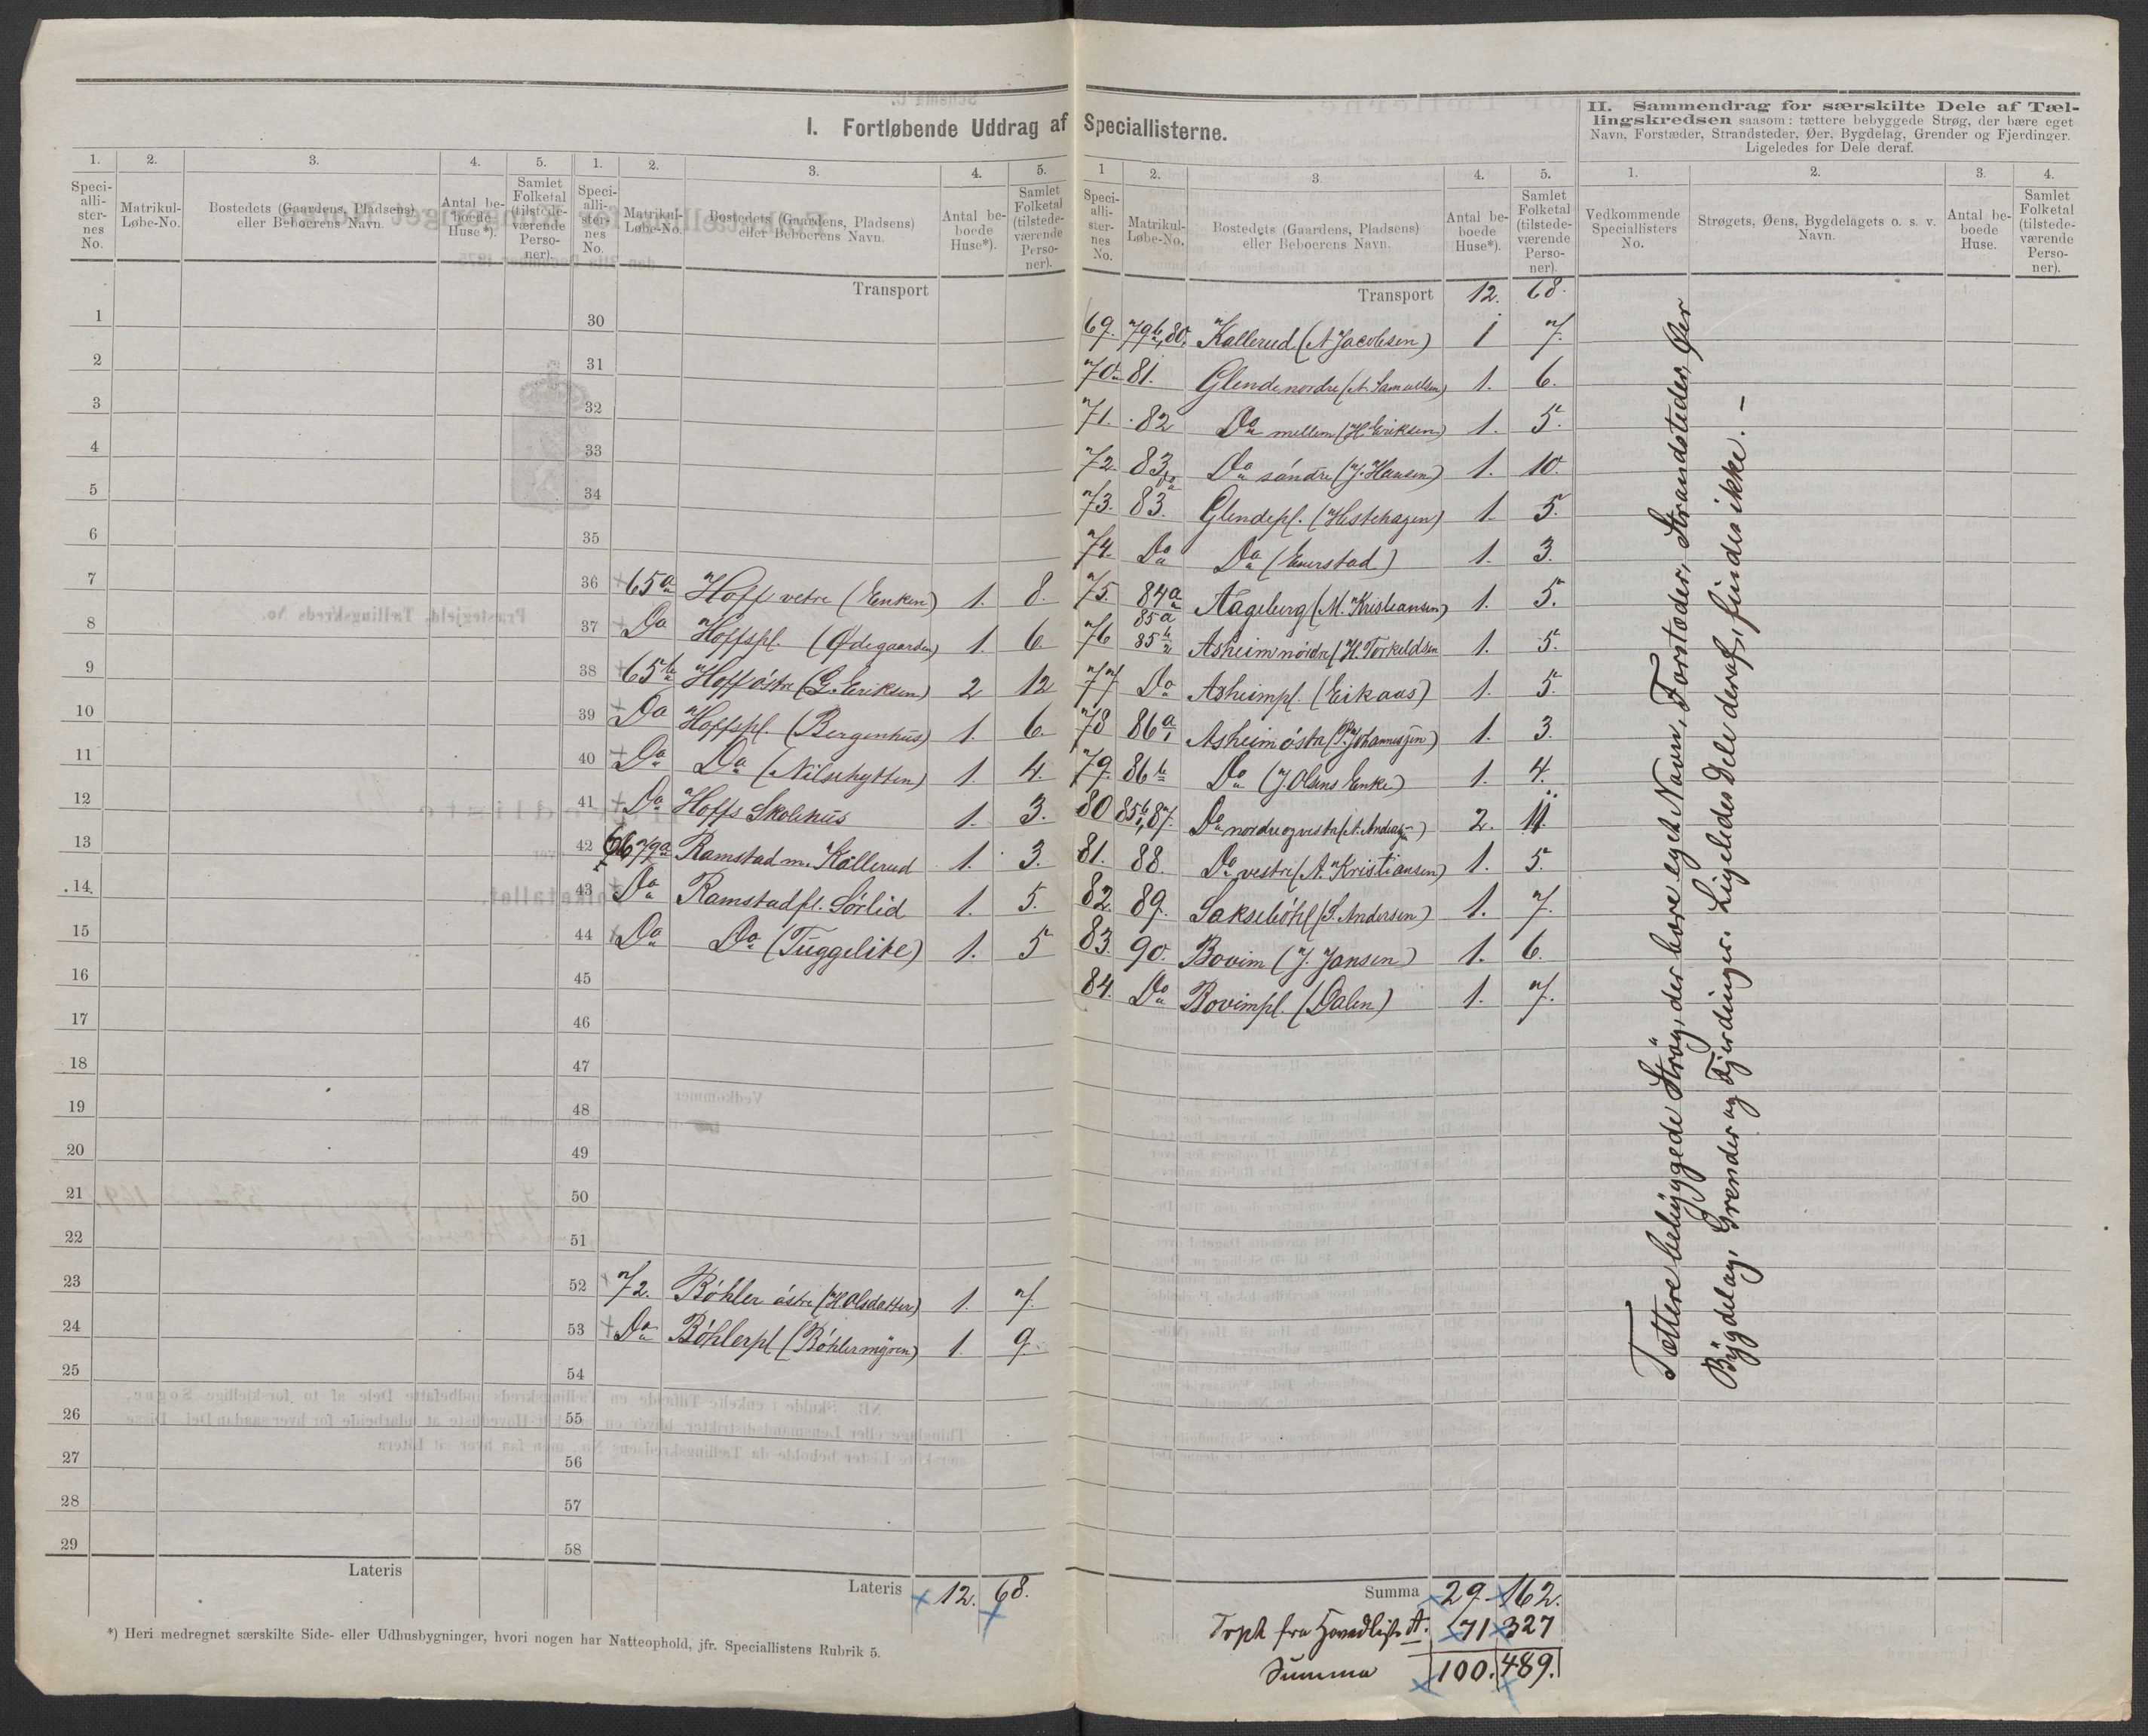 I. Fortløbende Uddrag af Speciallisterne.
1. 2. 3. 4. 5. 1. 2. 3. 4. 5.
Speci-alli-ster-nes No. Matrikul-Løbe-No. Bostedets (Gaardens, Pladsens) eller Beboerens Navn. Antal be-boede Huse*). Samlet Folketal (tilstede-værende Perso-ner).
Speci-alli-ster-nes No. Matrikul-Løbe-No. Bostedets (Gaardens, Pladsens) eller Beboerens Navn. Antal be-boede Huse*). Samlet Folketal (tilstede-værende Perso-ner).
Transport
1
2
3
4
5
6
7
8
9
10
11
12
13
14
15
16
17
18
19
20
21
22
23
24
25
26
27
28
29
Lateris
30
31
32
33
34
35
36 65a Hoff vetre (Enken) 1. 8.
37 Do Hoffspl. (Ødegaarden) 1. 6.
38 65b Hoff östre (G. Eriksen) 2 12
39 Do Hoffspl. (Bergenhus) 1. 6.
40 Do Do (Nilsehytten) 1. 4.
41 Do Hoffs Skolehus 1. 3.
42 66, 79a Ramstad m. Kallerud 1. 3.
43 Do Ramstadpl. Sørlid 1. 5.
44 Do Do (Tuggelite) 1. 5
45
46
47
48
49
50
51
52 72. Böhler östre (H. Olsdatter) 1. 7.
53 Do Böhlerpl (Böhlermyren) 1. 9.
54
55
56
57
58
Lateris 12. 68.
*) Heri medregnet særskilte Side- eller Udhusbygninger, hvori nogen har Natteophold, jfr. Speciallistens Rubrik 5.
1 2. 3. 4. 5.
Speci-alli-ster-nes No. Matrikul-Løbe-No. Bostedets (Gaardens, Pladsens) eller Beboerens Navn. Antal be-boede Huse*). Samlet Folketal (tilstede-værende Perso-ner).
Transport 12. 68.
69. 79b, 80. Kallerud (A Jacobsen) 1 7.
70. 81. Glende nordre (A. Samuelsen) 1. 6.
71. 82 Do mellem (H. Eriksen) 1. 5.
72. 83a Do söndre (J. Hansen) 1. 10.
73. 83. Glendepl. (Hestehagen) 1. 5.
74. Do Do (Enerstad) 1. 3.
75. 84a 85a Aageberg (M. Kristiansen) 1. 5.
76 85b Asheim nördre (H. Torkeldsen 1. 5.
77 Do Asheimpl. (Eikaas) 1. 5.
78 86a, Asheim östre (P. Johannesen) 1. 3.
79. 86b Do (J. Olsens Enke) 1. 4.
80 85b, 87. Do nordre og vestre (A. Andersen) 2. 11.
81. 88. Do vestre (A. Kristiansen) 1. 5.
82. 89. Sakseböhl (S. Andersen) 1. 7.
83. 90. Bovim (J. Jansen) 1. 6.
84. Do Bovimpl. (Dalen) 1. 7.
Summa 29. 162.
Trpt fra Hovedliste A. 71 327
Summa 100. 489.
II. Sammendrag for særskilte Dele af Tæl-
lingskredsen saasom: tættere bebyggede Strøg, der bære eget
Navn, Forstæder, Strandsteder, Øer, Bygdelag, Grender og Fjerdinger.
Ligeledes for Dele deraf.
1. 2. 3. 4.
Vedkommende Speciallisters No. Strøgets, Øens, Bygdelagets o. s. v. Navn. Antal be-boede Huse. Samlet Folketal (tilstede-værende Perso-ner).
Tættere bebyggede Strøg, der bære eget Navn, Forstæder, Strandsteder, Øer
Bygdelag, Grender og Fjerdinger. Ligeledes Dele deraf, findes ikke. —